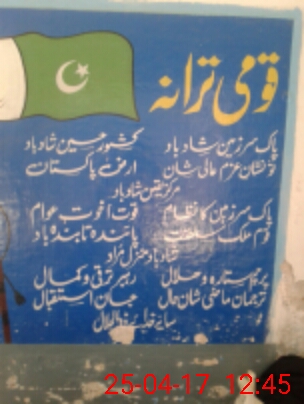 قومی ترانہ
پاک سرزمین شاد باد کشور حسین شاد باد
تو نشان عزم عالی شان ارض پاکستان
مرکز یقین شاد باد
پاک سرزمین کا نظام قوت اخوت عوام
قوم ملک سلطنت پائندہ تابندہ باد
شاد باد منزل مراد
پرچم ستارہ و ہلال رہبر ترقی و کمال
ترجمان ماضی شان حال جان استقبال
سایہ خدائے ذوالجلال
25-04-17 12:45